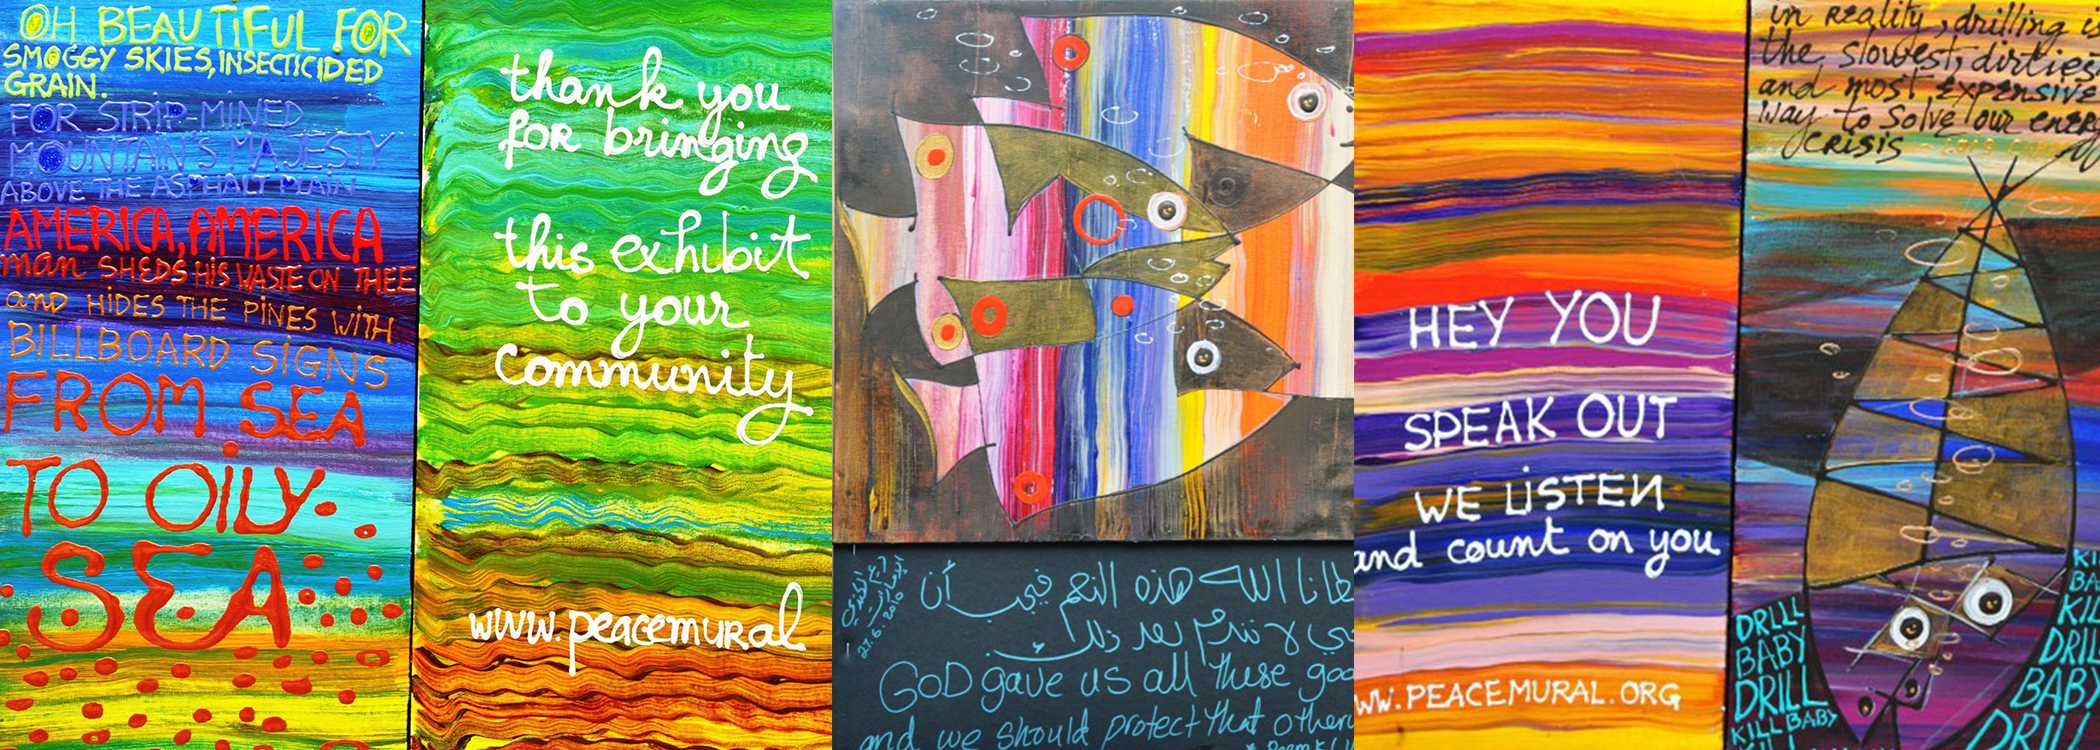 OH BEAUTIFUL FOR
SMOGGY SKIES, INSECTICIDED
GRAIN.
FOR STRIP-MINED
MOUNTAIN'S MAJESTY
ABOVE THE ASPHALT PLAIN.
AMERICA, AMERICA
man SHEDS HIS WASTE ON THEE
and HIDES THE PINES WITH
BILLBOARD SIGNS
FROM SEA
TO OILY
SEA
thank you
for bringing
this exhibit
to your
community
www.peacemural
الله هذه النعم فيجب أن
بعد ذلك
27.6.2010
GOD gave us all these goo
and we should protect that otherw
HEY YOU
SPEAK OUT
WE LISTEN
and count on you
WW.PEACEMURAL.ORG
in REality, drilling is
the slowest, dirties
and most EXPENSIVE
Way to Solve our ener
CRISIS
DRILL
BABY
DRILL
KILL BABY
KI
BA
KIL
DRIL
BABY
DRILL